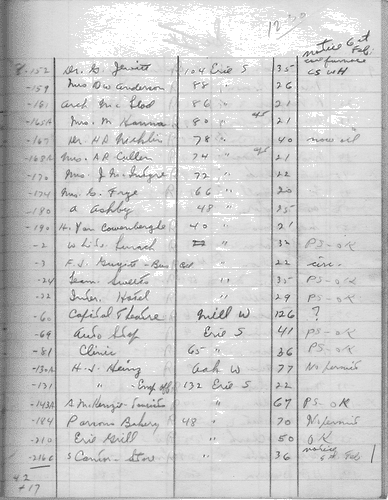 12
notice 6 at
Feb.
air furnace
8-152 Dr. G. Jewitt 104 Erie S 35 CS WH
-159 Mrs DW Anderson 88 " 26
-161 Arch Mc 86 " 21
-165A Mrs. M Hanna 80 " 45 21
-167 Dr. HR 78 " 40 now oil
-168A Mrs. AR Culler 74 " 45 21
-170 Mrs. J. McIntyre 72 " 22
-174 Mrs G. Frye 66 " 20
-180 A Ashby 48 " 35
-190 H. Van Cowenberghe 40 " 21
-2 White Lunch " 32 PS-OK
-3 F.J. Bus 22 circ.
-24 Team Sweets " 35 PS-OK
-32 Inter. Hotel " 29 PS-OK
-60 Capitol Theatre Mill W 126 ?
-69 Auto Shop Erie S 41 PS-OK
-81 Clinic 65 " 36 PS-OK
-130A H.J. Heinz Oak W 77 No permit
-131 " - Emp off 132 Erie S 22
-143A S McKenzie " 67 PS OK
-184 Parsons Bakery 48 " 70 No permit
-210 Erie Grill " 50 OK
-216C S Store " 36 notice
6 at Feb
42
+17